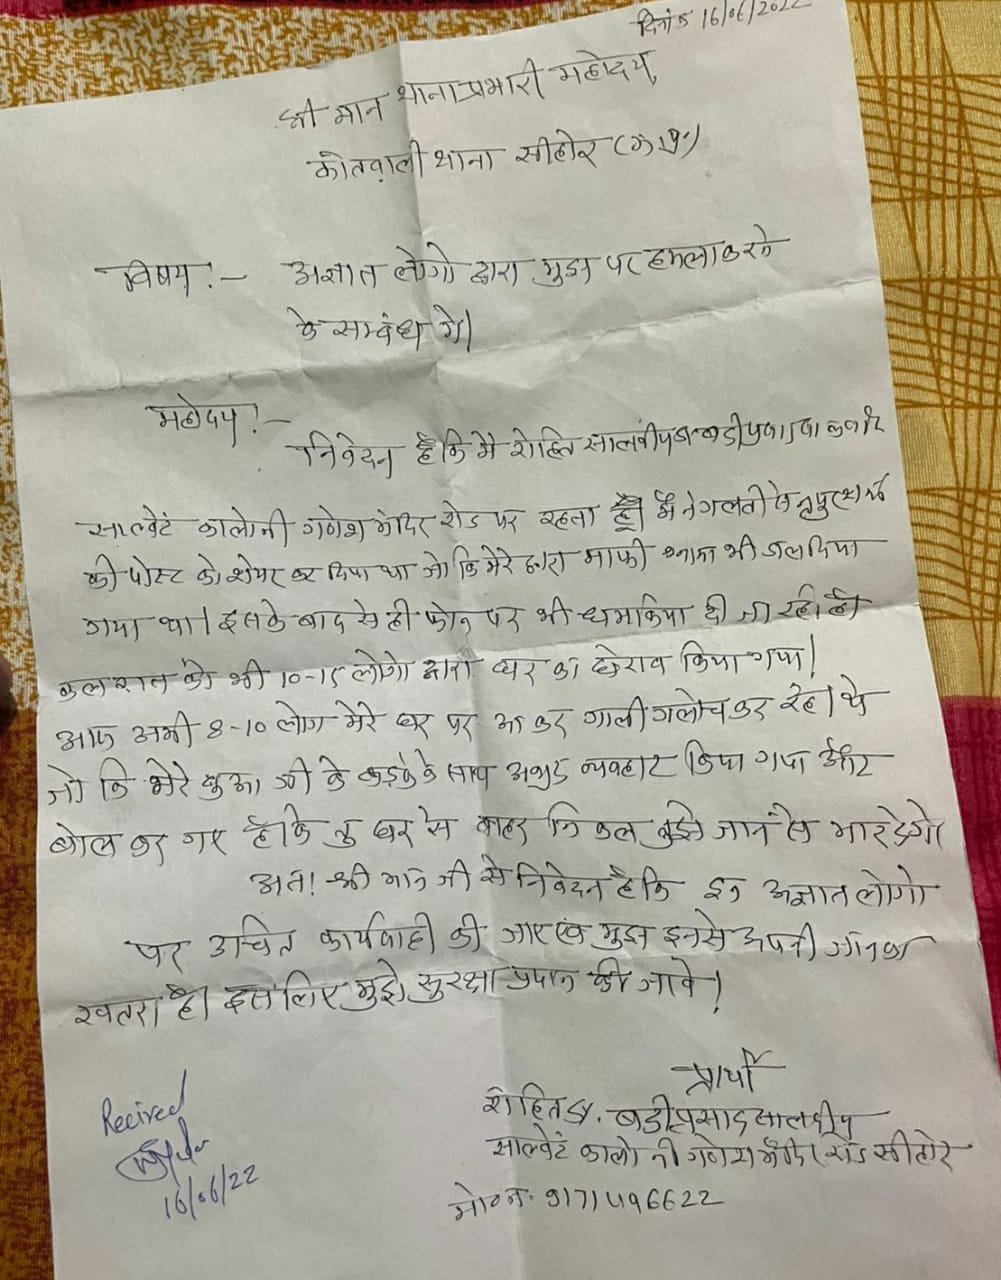 दिनांक 16/06/2022
श्री मान थाना प्रभारी महोदय,
कोतवाली थाना सीहोर (म.प्र.)
विषय:- अज्ञात लोगो द्वारा मुझ पर हमला करने
के सम्बंध मे।
महोदय:-
निवेदन है कि मै रोहित
साल्वेटं कालोनी गणेश मंदिर रोड पर रहता हूँ। मैने गलती से नुपुर शर्मा
की पोस्ट को शेयर कर दिया था जो कि मेरे द्वारा माफी भी डाल दिया
गया था। इसके बाद से ही फोन पर भी धमकिया दी जा रही है।
कल रात को भी 10-15 लोगो द्वारा घर का घेराव किया गया।
आज अभी 8-10 लोग मेरे घर पर आ कर गाली गलोच कर रहे थे
जो कि मेरे बुआ जी के लड़के के साथ अभद्र व्यवहार किया गया और
बोल कर गए है कि तु घर से बाहर निकल तुझे जान से मार देगे।
अतः श्री मान जी से निवेदन है कि इन अज्ञात लोगो
पर उचित कार्यवाही की जाए एवं मुझे इनसे अपनी जान का
खतरा है। इस लिए मुझे सुरक्षा प्रदान की जावे।
प्रार्थी
रोहित S/. बद्रीप्रसाद सालवीय
साल्वेटं कालोनी गणेश मंदिर रोड सीहोर
मो०न. 9171496622
Recived
16/06/22